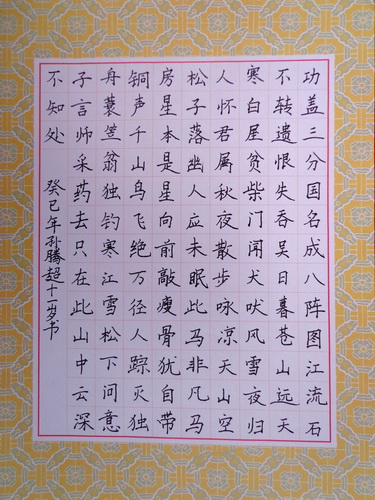 功盖三分国名成八阵图江流石
不转遗恨失吞吴日暮苍山远天
寒白屋贫柴门闻犬吠风雪夜归
人怀君属秋夜散步咏凉天山空
松子落幽人应未眠此马非凡马
房星本是星向前敲瘦骨犹自带
铜声千山鸟飞绝万径人踪灭独
舟蓑笠翁独钓寒江雪松下问意
子言师采药去只在此山中云深
不知处
癸巳年孙腾超十一岁书